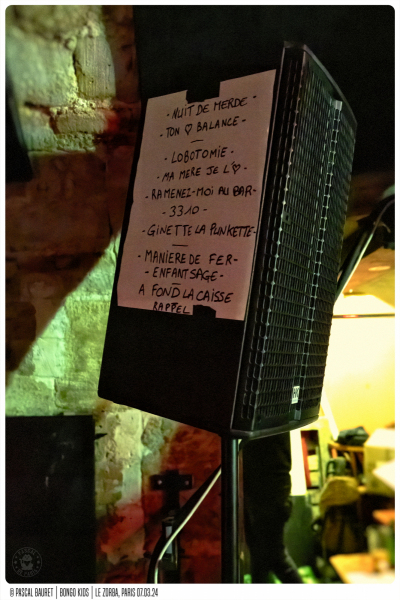 - NUIT DE MERDE -
- TON ♡ BALANCE -
—
- LOBOTOMIE -
- MA MERE JE L'♡ -
- RAMENEZ-MOI AU BAR -
- 3310 -
- GINETTE LA PUNKETTE -
—
- MANIERE DE FER -
- ENFANT SAGE -
—
A FOND LA CAISSE
RAPPEL
© PASCAL GAURET | BONGO KIDS | LE ZORBA, PARIS 07.03.24